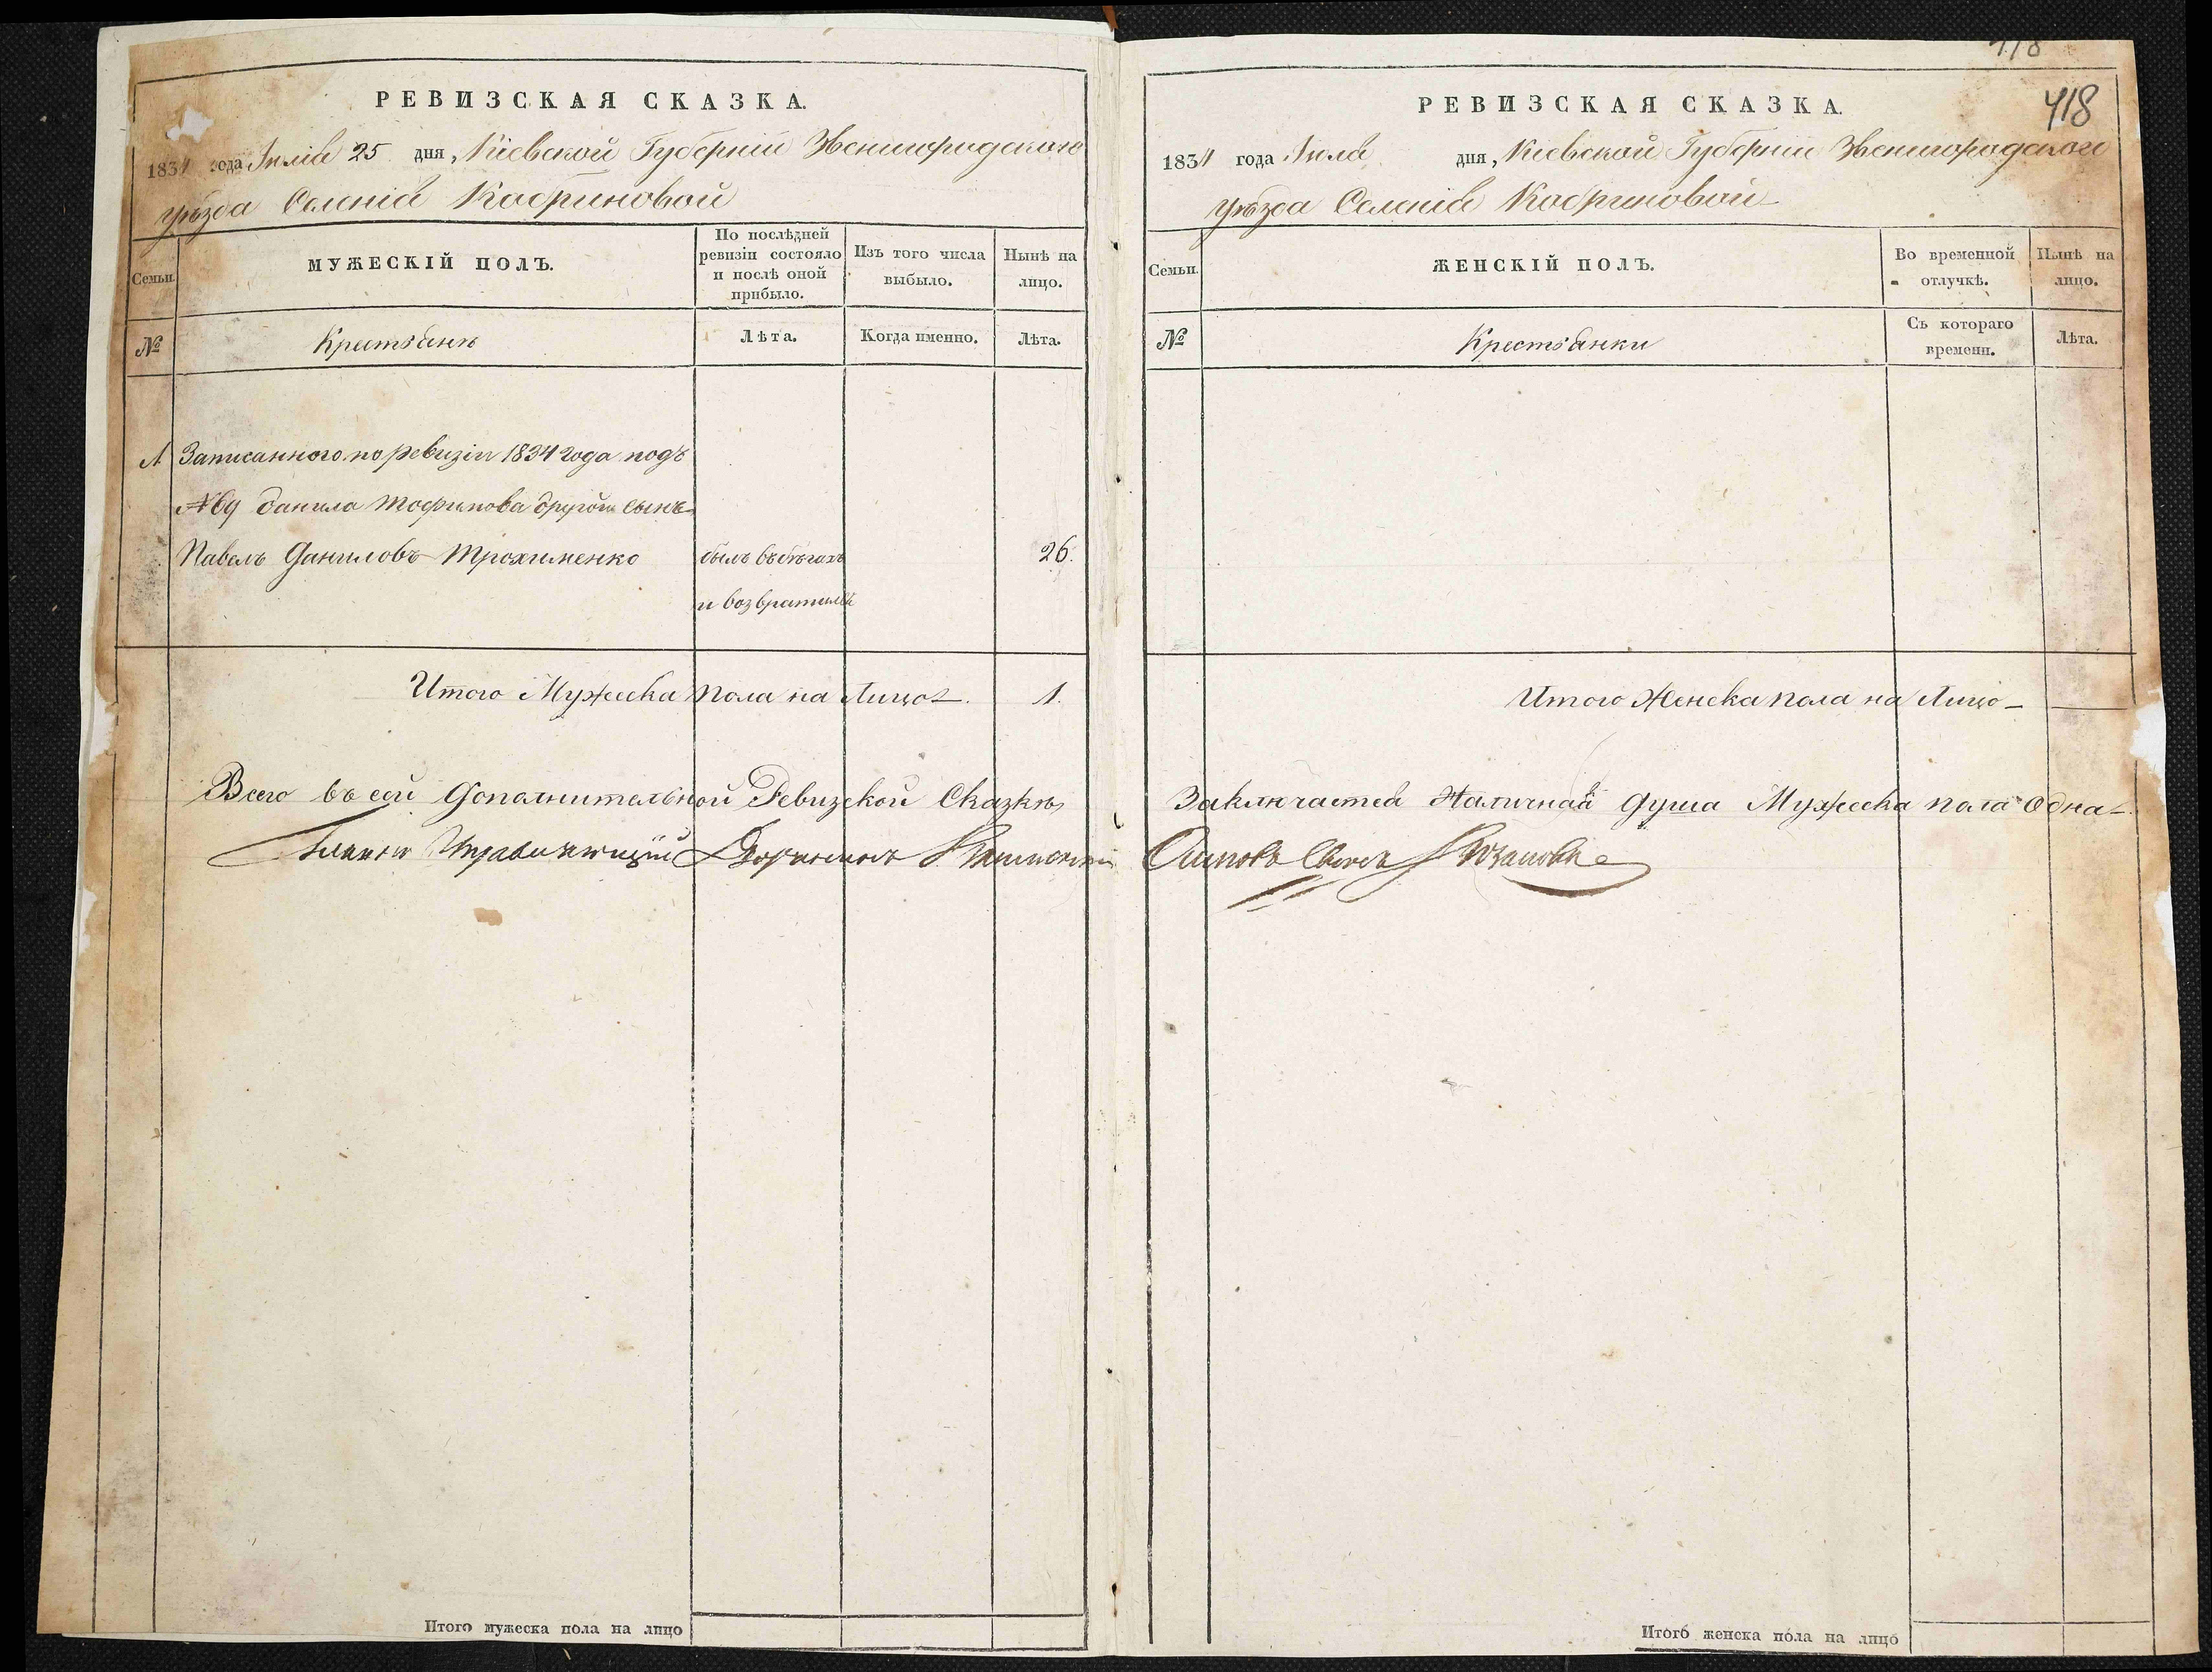 РЕВИЗСКАЯ СКАЗКА.
1834 года Іюлія 25 дня, Кіевской Губерніи Звенигородского
уѣзда Селенія Кобриновой
Семьи.
МУЖЕСКІЙ ПОЛЪ.
По послѣдней ревизіи состояло и послѣ оной прибыло.
Изъ того числа выбыло.
Нынѣ на лицо.
№
Крестьянъ
Лѣта.
Когда именно.
Лѣта.
1 Записанного по ревизіи 1834 года подъ
№ данила другой сынъ
Павелъ Даниловъ Трохименко былъ въ бѣгахъ 26.
и возвратился
Итого Мужеска пола на Лицо 1.
Всего въ сей Дополнительной Ревизской Сказкѣ
Управляющій
Итого мужеска пола на лицо
418
418
РЕВИЗСКАЯ СКАЗКА.
1834 года Іюля дня, Кіевской Губерніи Звенигородского
уѣзда Селенія Кобриновой
Семьи.
ЖЕНСКІЙ ПОЛЪ.
Во временной отлучкѣ.
Нынѣ на лицо.
№
Крестьянки
Съ котораго времени.
Лѣта.
Итого Женска пола на Лицо —
Заключается Наличная душа Мужеска пола Одна
Итого женска пола на лицо